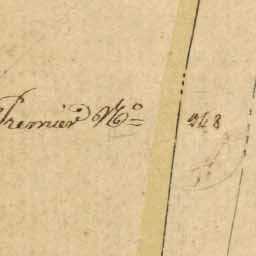 Premier No= 248